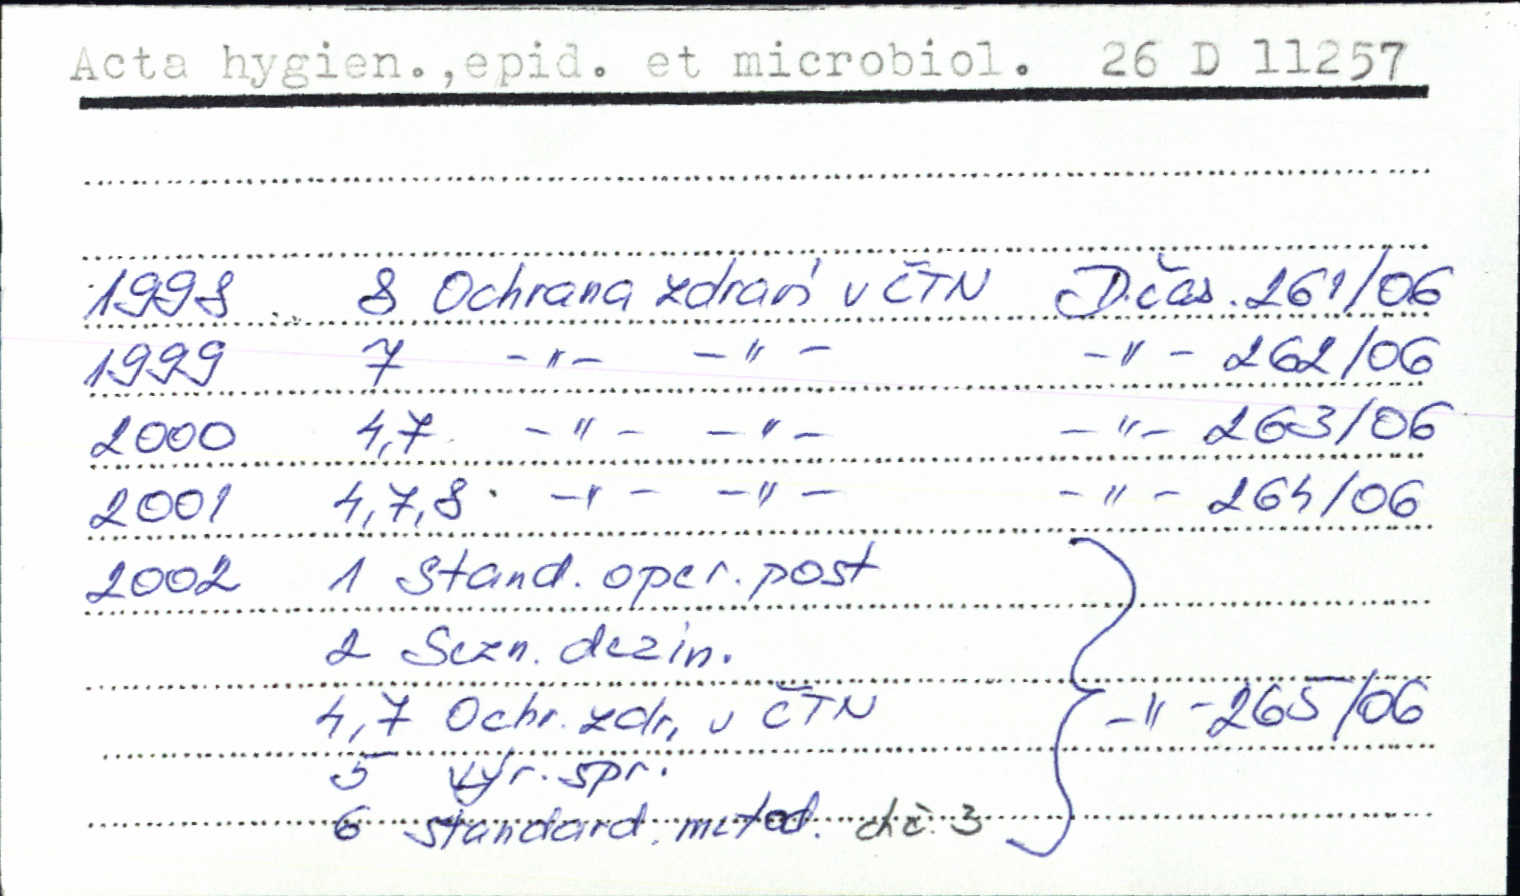 Acta hygien.,epid. et microbiol. 26 D 11257
1998 8 Ochrana zdraví v ČTN D čas. 261/06
1999 7 -"- -"- -"- 262/06
2000 4,7 -"- -"- -"- 263/06
2001 4,7,8 -"- -"- -"- 264/06
2002 1 Stand. oper. post
2 Sezn. dezin.
4,7 Ochr. zdr, v ČTN -"- 265/06
5 Výr. spr.
6 Standard. metod. chč. 3